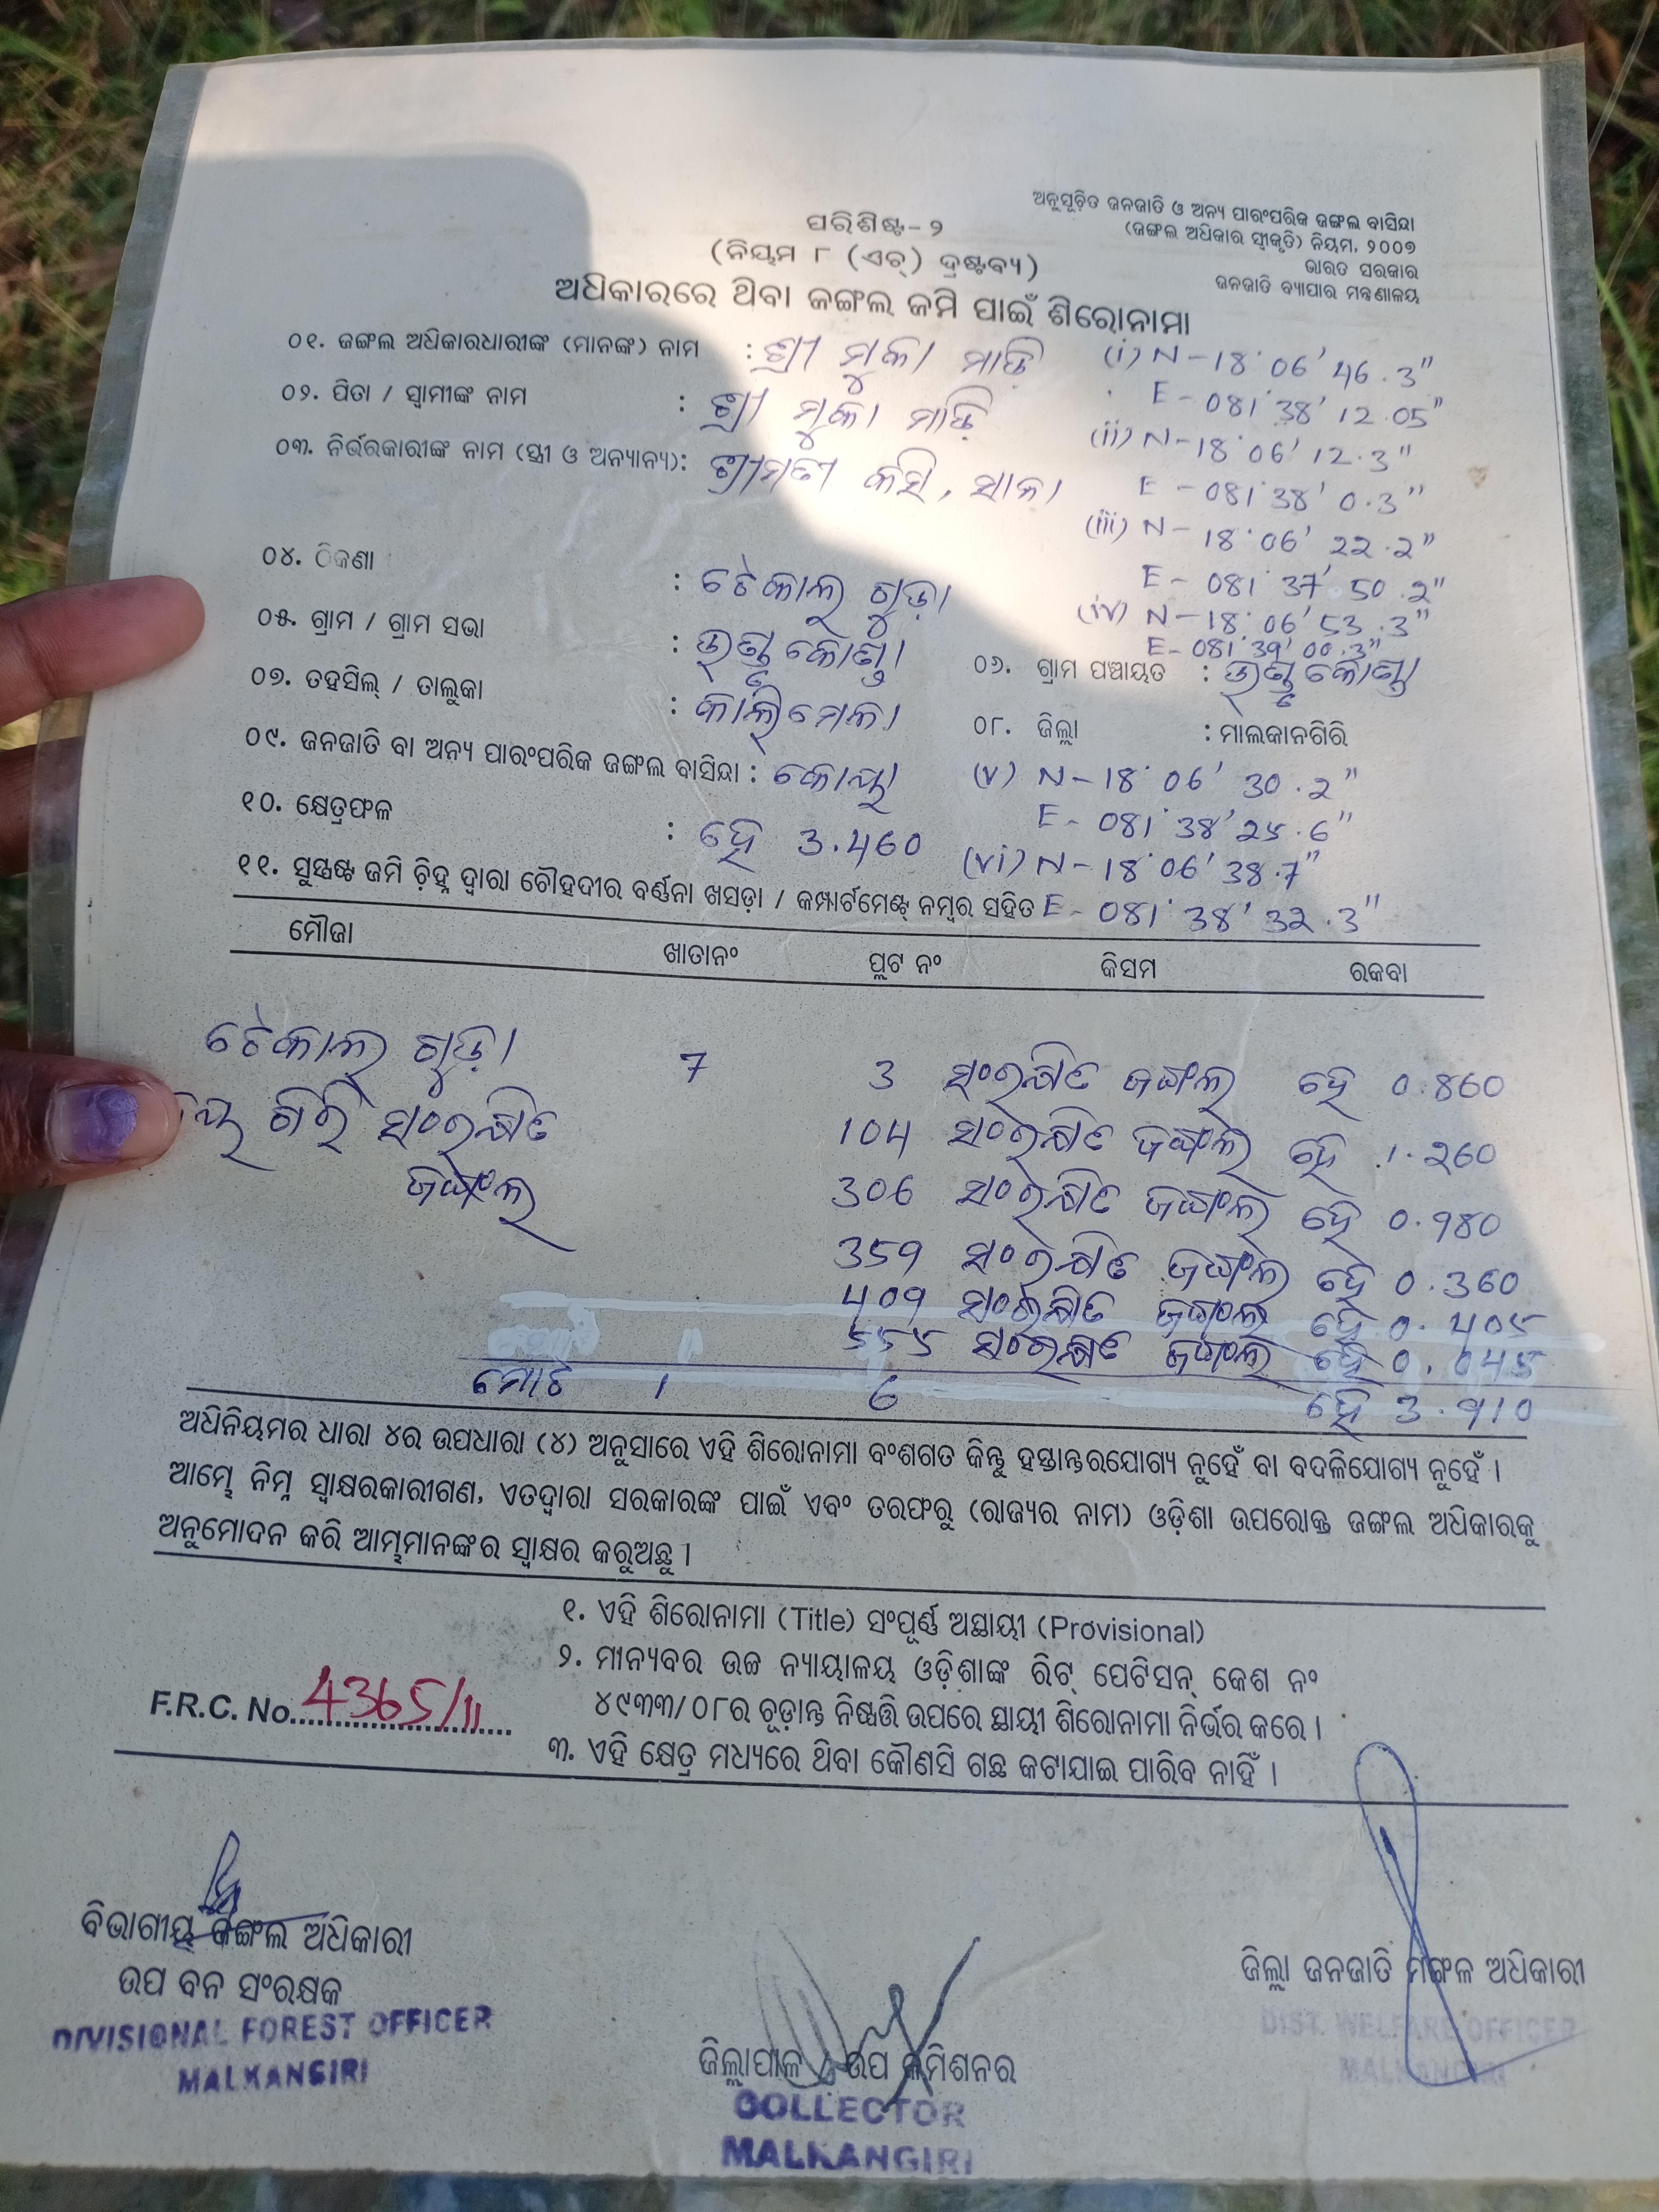 ଅନୁସୂଚିତ ଜନଜାତି ଓ ଅନ୍ୟ ପାରଂପରିକ ଜଙ୍ଗଲ ବାସିନ୍ଦା
(ଜଙ୍ଗଲ ଅଧିକାର ସ୍ୱୀକୃତି) ନିୟମ, ୨୦୦୭
ଭାରତ ସରକାର
ଜନଜାତି ବ୍ୟାପାର ମନ୍ତ୍ରଣାଳୟ
ପରିଶିଷ୍ଟ- ୨
(ନିୟମ ୮ (ଏଚ୍) ଦ୍ରଷ୍ଟବ୍ୟ)
ଅଧିକାରରେ ଥିବା ଜଙ୍ଗଲ ଜମି ପାଇଁ ଶିରୋନାମା
୦୧. ଜଙ୍ଗଲ ଅଧିକାରଧାରୀଙ୍କ (ମାନଙ୍କ) ନାମ : ଶ୍ରୀ ମୁକା ମାଡ଼ି (i) N-18°06'46.3"
E-081°38'12.05"
୦୨. ପିତା / ସ୍ୱାମୀଙ୍କ ନାମ : ଶ୍ରୀ ମୁକା ମାଡ଼ି (ii) N-18°06'12.3"
E-081°38'0.3"
୦୩. ନିର୍ଭରକାରୀଙ୍କ ନାମ (ସ୍ତ୍ରୀ ଓ ଅନ୍ୟାନ୍ୟ): ଶ୍ରୀମତୀ କସି, (iii) N-18°06'22.2"
E-081°37'50.2"
୦୪. ଠିକଣା : ଟେକାଲ ଗୁଡ଼ା (iv) N-18°06'53.3"
E-081°39'00.3"
୦୫. ଗ୍ରାମ / ଗ୍ରାମ ସଭା : ୦୬. ଗ୍ରାମ ପଞ୍ଚାୟତ :
୦୭. ତହସିଲ୍ / ତାଲୁକା : କାଲିମେଳା ୦୮. ଜିଲ୍ଲା : ମାଲକାନଗିରି
୦୯. ଜନଜାତି ବା ଅନ୍ୟ ପାରଂପରିକ ଜଙ୍ଗଲ ବାସିନ୍ଦା : କୋୟା (v) N-18°06'30.2"
E-081°38'25.6"
୧୦. କ୍ଷେତ୍ରଫଳ : ହେ 3.460 (vi) N-18°06'38.7"
E-081°38'32.3"
୧୧. ସୁସ୍ପଷ୍ଟ ଜମି ଚିହ୍ନ ଦ୍ୱାରା ଚୌହଦୀର ବର୍ଣ୍ଣନା ଖସଡ଼ା / କମ୍ପାର୍ଟମେଣ୍ଟ୍ ନମ୍ବର ସହିତ
ମୌଜା ଖାତାନଂ ପ୍ଲଟ ନଂ କିସମ ରକବା
ଟେକାଲ ଗୁଡ଼ା 7 3 ସଂରକ୍ଷିତ ଜଙ୍ଗଲ ହେ 0.860
ଗିରି ସଂରକ୍ଷିତ 104 ସଂରକ୍ଷିତ ଜଙ୍ଗଲ ହେ 1.260
ଜଙ୍ଗଲ 306 ସଂରକ୍ଷିତ ଜଙ୍ଗଲ ହେ 0.980
359 ସଂରକ୍ଷିତ ଜଙ୍ଗଲ ହେ 0.360
409 ସଂରକ୍ଷିତ ଜଙ୍ଗଲ ହେ 0.405
555 ସଂରକ୍ଷିତ ଜଙ୍ଗଲ ହେ 0.045
ମୋଟ 1 6 ହେ 3.910
ଅଧିନିୟମର ଧାରା ୪ର ଉପଧାରା (୪) ଅନୁସାରେ ଏହି ଶିରୋନାମା ବଂଶଗତ କିନ୍ତୁ ହସ୍ତାନ୍ତରଯୋଗ୍ୟ ନୁହେଁ ବା ବଦଳିଯୋଗ୍ୟ ନୁହେଁ ।
ଆମ୍ଭେ ନିମ୍ନ ସ୍ୱାକ୍ଷରକାରୀଗଣ, ଏତଦ୍ୱାରା ସରକାରଙ୍କ ପାଇଁ ଏବଂ ତରଫରୁ (ରାଜ୍ୟର ନାମ) ଓଡ଼ିଶା ଉପରୋକ୍ତ ଜଙ୍ଗଲ ଅଧିକାରକୁ
ଅନୁମୋଦନ କରି ଆମ୍ଭମାନଙ୍କର ସ୍ୱାକ୍ଷର କରୁଅଛୁ ।
୧. ଏହି ଶିରୋନାମା (Title) ସଂପୂର୍ଣ୍ଣ ଅସ୍ଥାୟୀ (Provisional)
୨. ମାନ୍ୟବର ଉଚ୍ଚ ନ୍ୟାୟାଳୟ ଓଡ଼ିଶାଙ୍କ ରିଟ୍ ପେଟିସନ୍ କେଶ ନଂ
୪୯୩୩/୦୮ର ଚୂଡ଼ାନ୍ତ ନିଷ୍ପତ୍ତି ଉପରେ ସ୍ଥାୟୀ ଶିରୋନାମା ନିର୍ଭର କରେ ।
୩. ଏହି କ୍ଷେତ୍ର ମଧ୍ୟରେ ଥିବା କୌଣସି ଗଛ କଟାଯାଇ ପାରିବ ନାହିଁ ।
F.R.C. No. 4365/11
ବିଭାଗୀୟ ଜଙ୍ଗଲ ଅଧିକାରୀ
ଉପ ବନ ସଂରକ୍ଷକ
DIVISIONAL FOREST OFFICER
MALKANGIRI
ଜିଲ୍ଲାପାଳ ଓ ଉପ କମିଶନର
COLLECTOR
MALKANGIRI
ଜିଲ୍ଲା ଜନଜାତି ମଙ୍ଗଳ ଅଧିକାରୀ
DIST. WELFARE OFFICER
MALKANGIRI